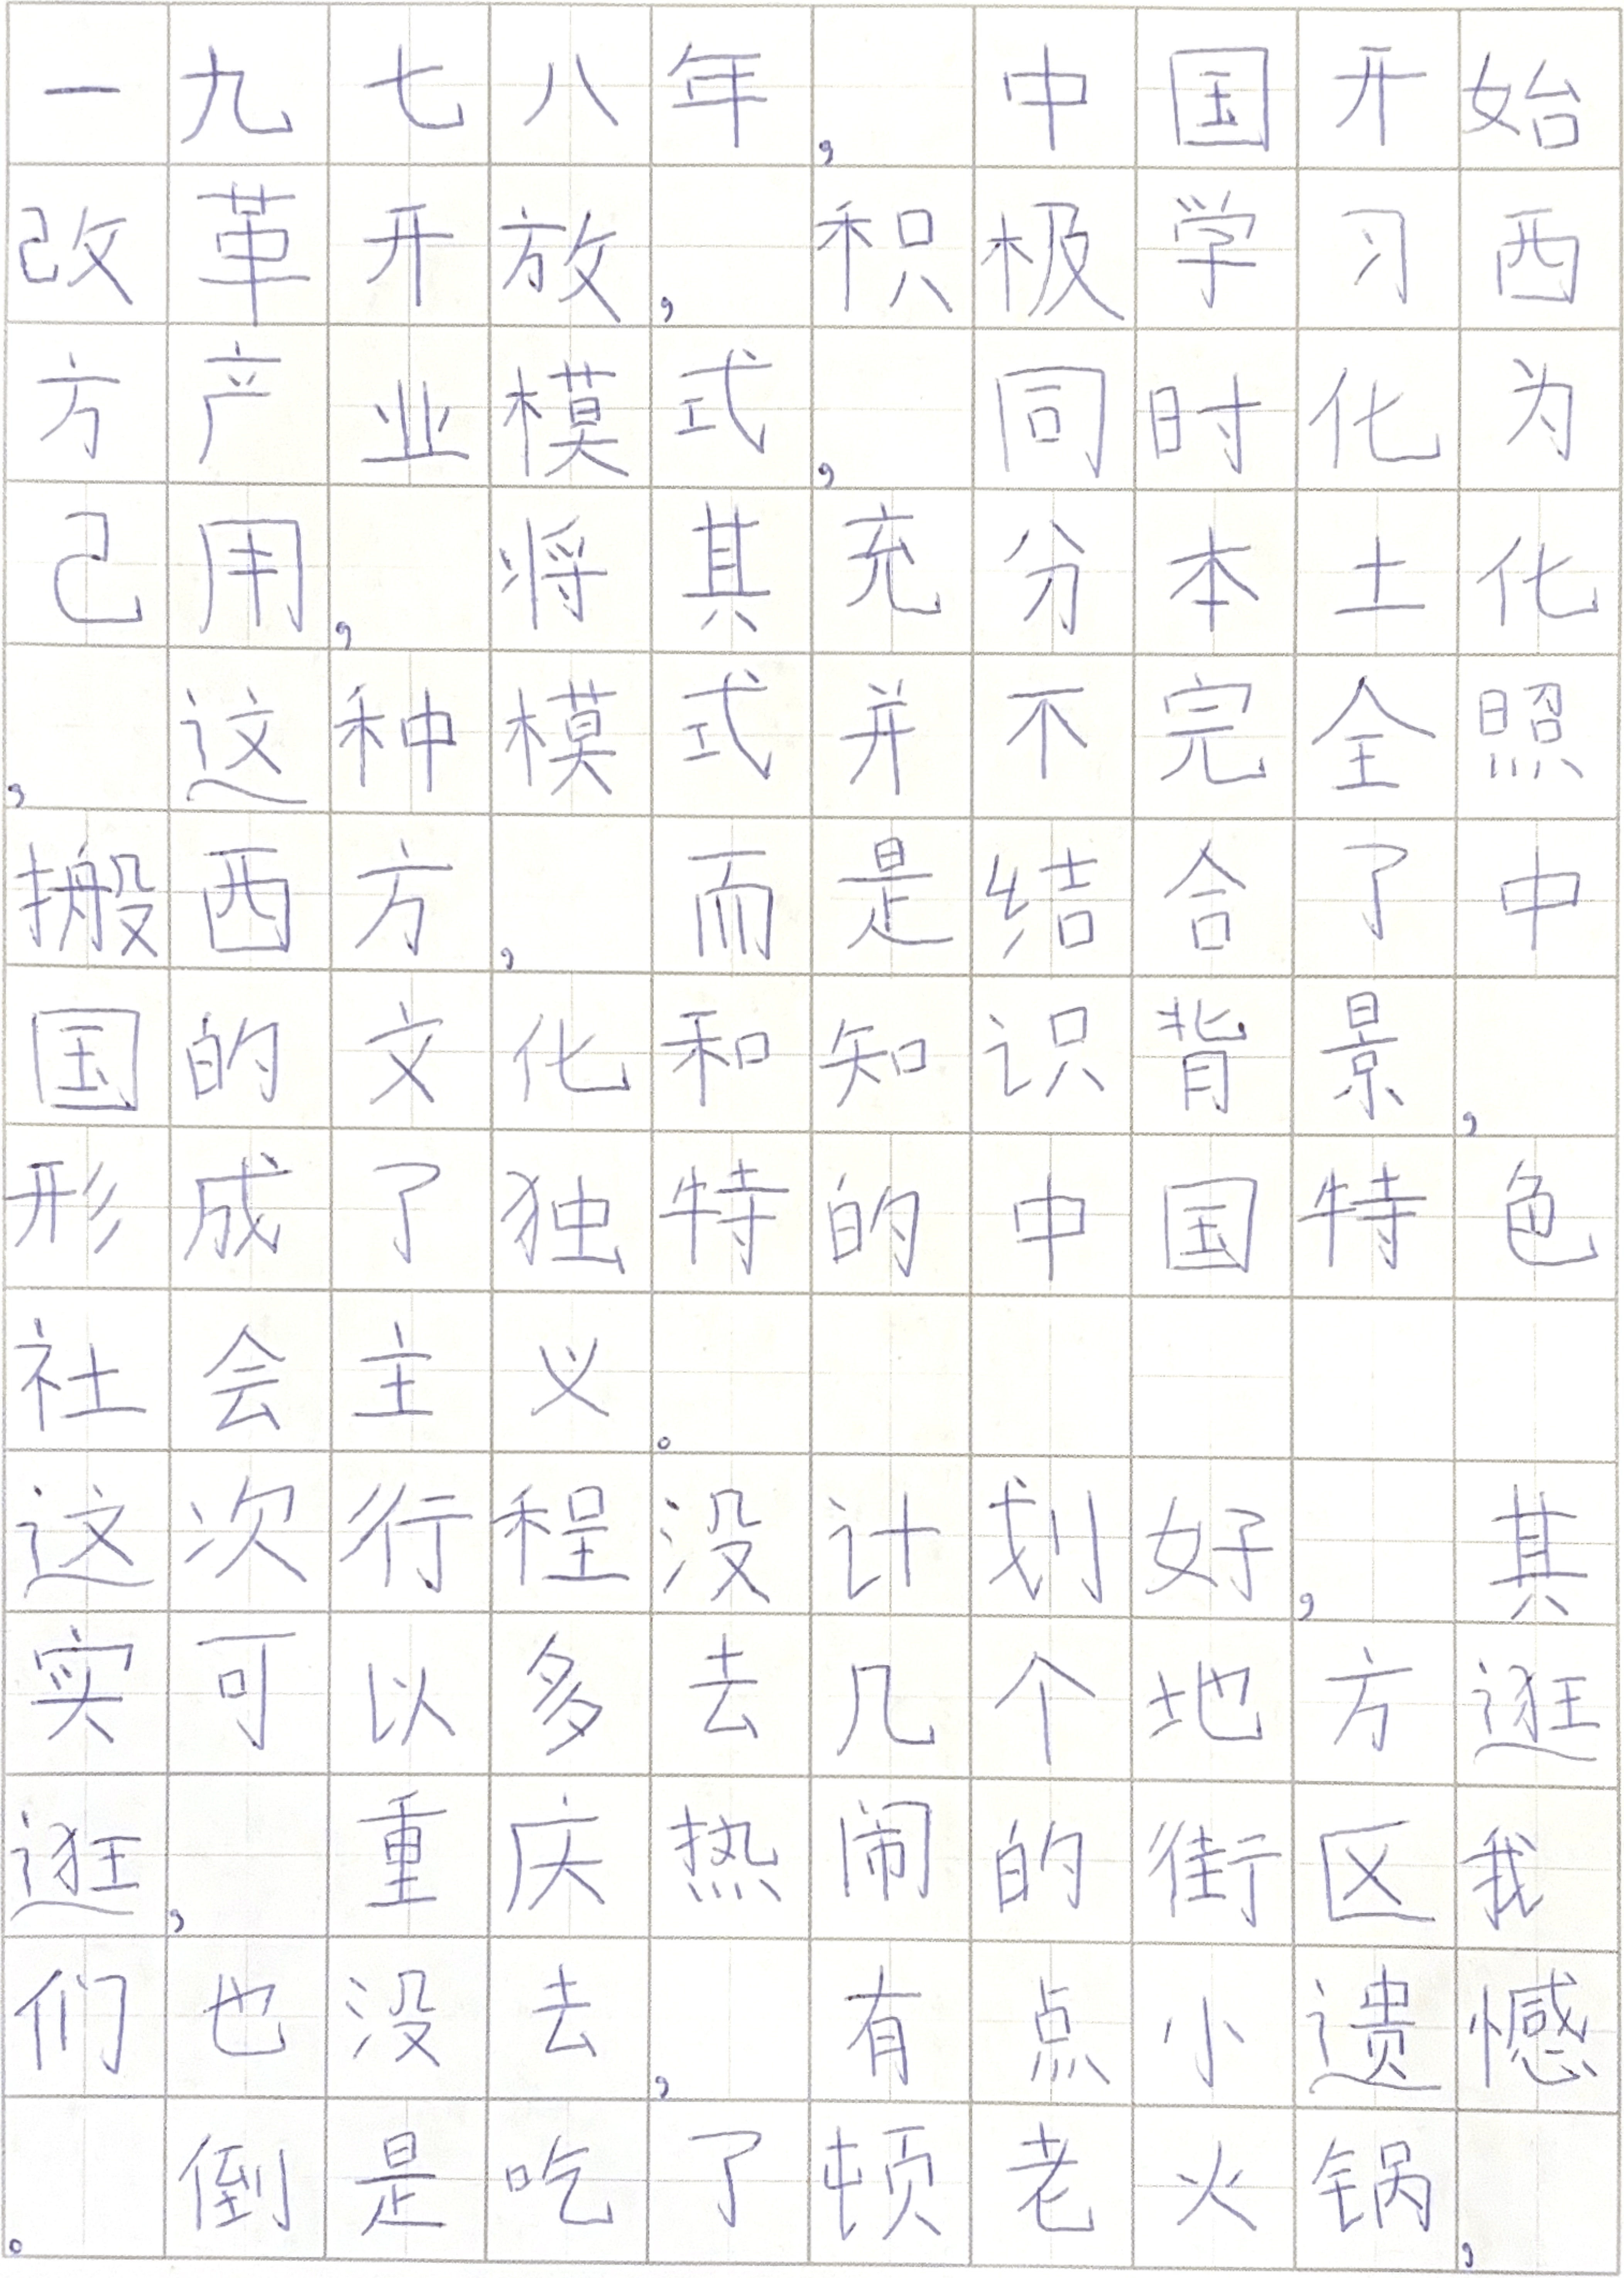 一九七八年，中国开始
改革开放，积极学习西
方产业模式，同时化为
己用，将其充分本土化
，这种模式并不完全照
搬西方，而是结合了中
国的文化和知识背景，
形成了独特的中国特色
社会主义。
这次行程没计划好，其
实可以多去几个地方逛
逛，重庆热闹的街区我
们也没去，有点小遗憾
。倒是吃了顿老火锅，